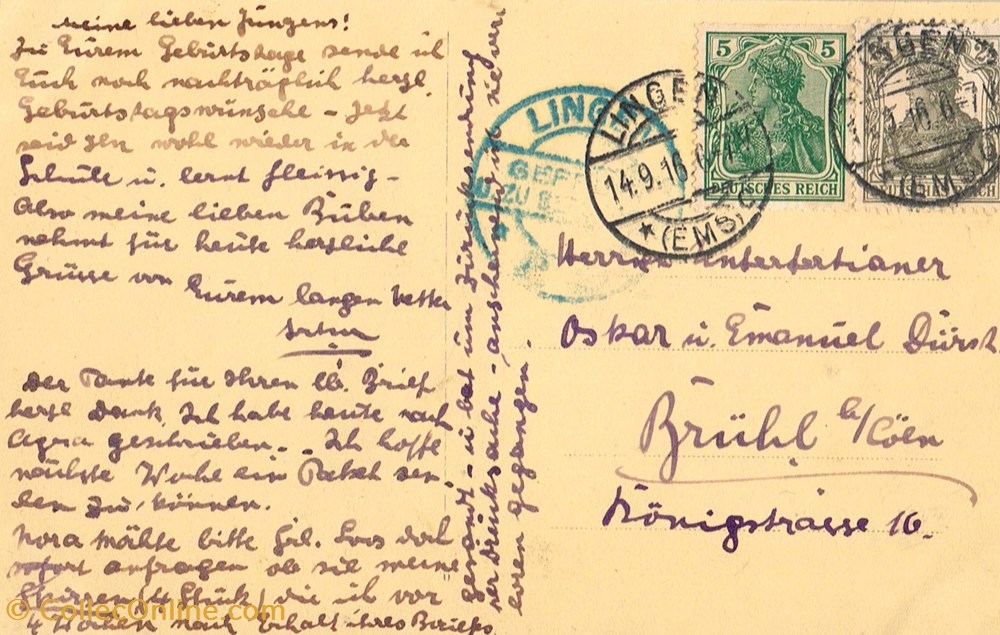 Meine lieben Jungens!
Zu Eurem Geburtstage sende ich
Euch noch nachträglich herzl.
Geburtstagswünsche - Jetzt
seid Ihr wohl wieder in der
Schule u. lernt fleissig -
Also meine lieben Buben
nehmt für heute herzliche
Grüsse von
Eurem langen Vetter
Der Tante für Ihren lb. Brief
herzl Dank, Ich habe heute nach
geschrieben. - Ich hoffe
nächste Woche ein Paket sen
den zu können.
Nora möchte bitte Frl. Loos doch
sofort anfragen ob sie meine
Skizzen (4 Stück) die ich vor
4 Wochen nach Erhalt ihres Briefes
gesandt - u bat um Zurücksendung
der Drucksache - anscheinend ist sie ver
loren gegangen.
LINGEN
GEPR
ZU B
LINGEN
14.9.16
(EMS)
5 5
DEUTSCHES REICH
LINGEN
.16.6-7
(EMS)
DEUTSCHES REICH
Herren Untertertianer
Oskar u. Emanuel Dürst
Brühl b/Cöln
Königstrasse 16.
© CollecOnline.com